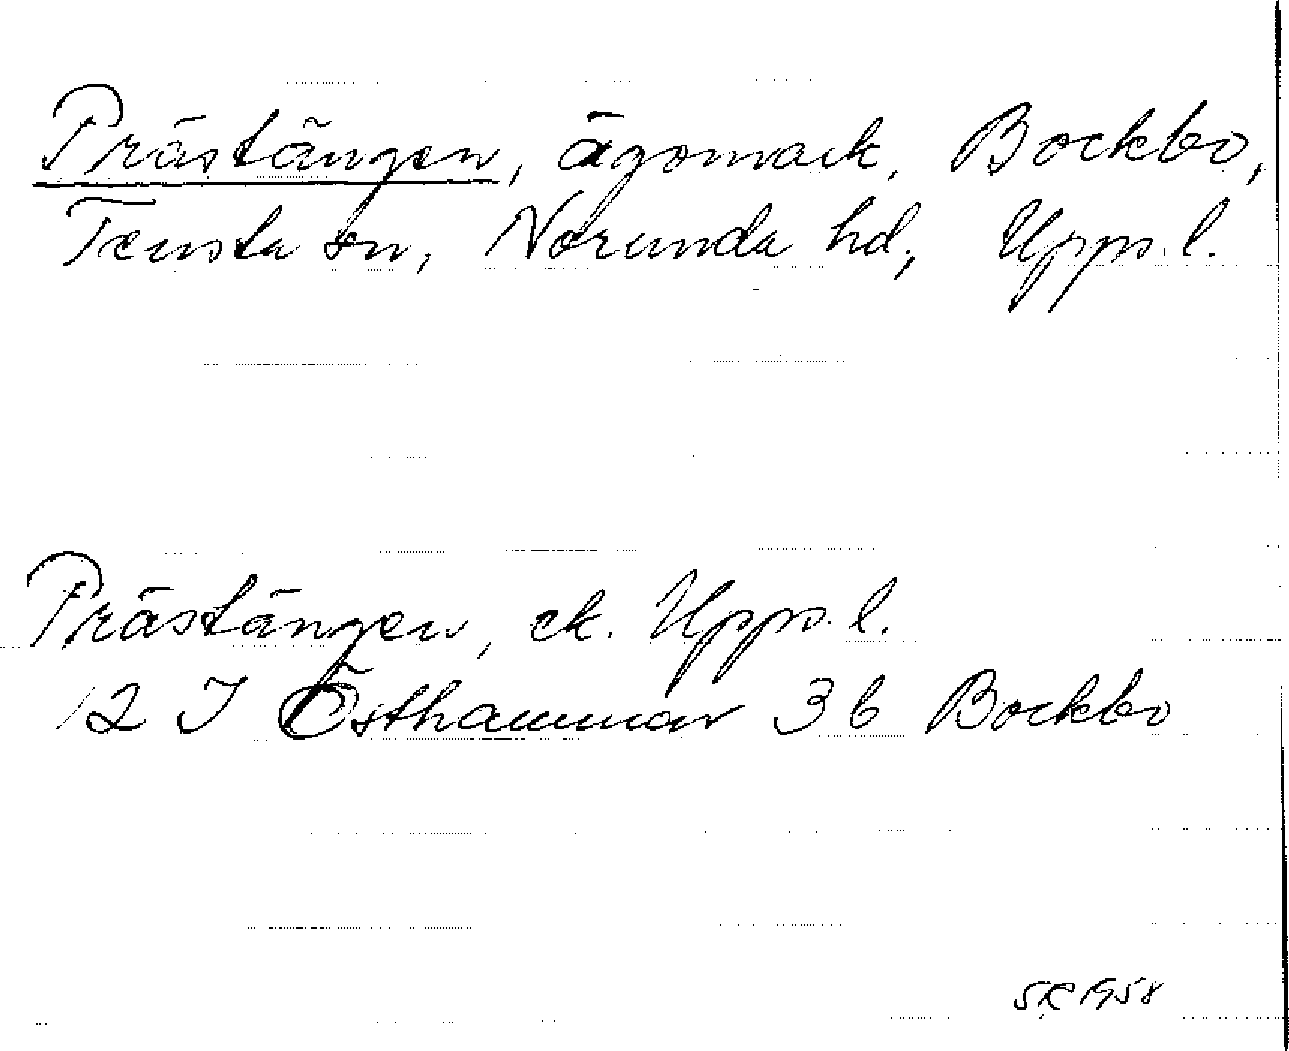 Prästängen, ägomark, Bockbo,
Tensta sn, Norunda hd, Upps. l.
Prästängen, ek. Upps. l.
12 I Östhammar 3b Bockbo
SR 1958